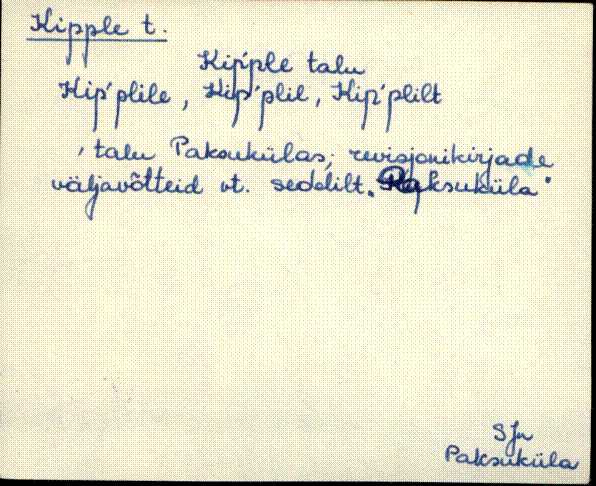 Kipple t.
Kip'ple talu
Kip'plile, Kip'plil, Kip'plilt
, talu Paksukülas; revisjonikirjade
väljavõtteid vt. sedelilt „Paksuküla"
SJn
Paksuküla